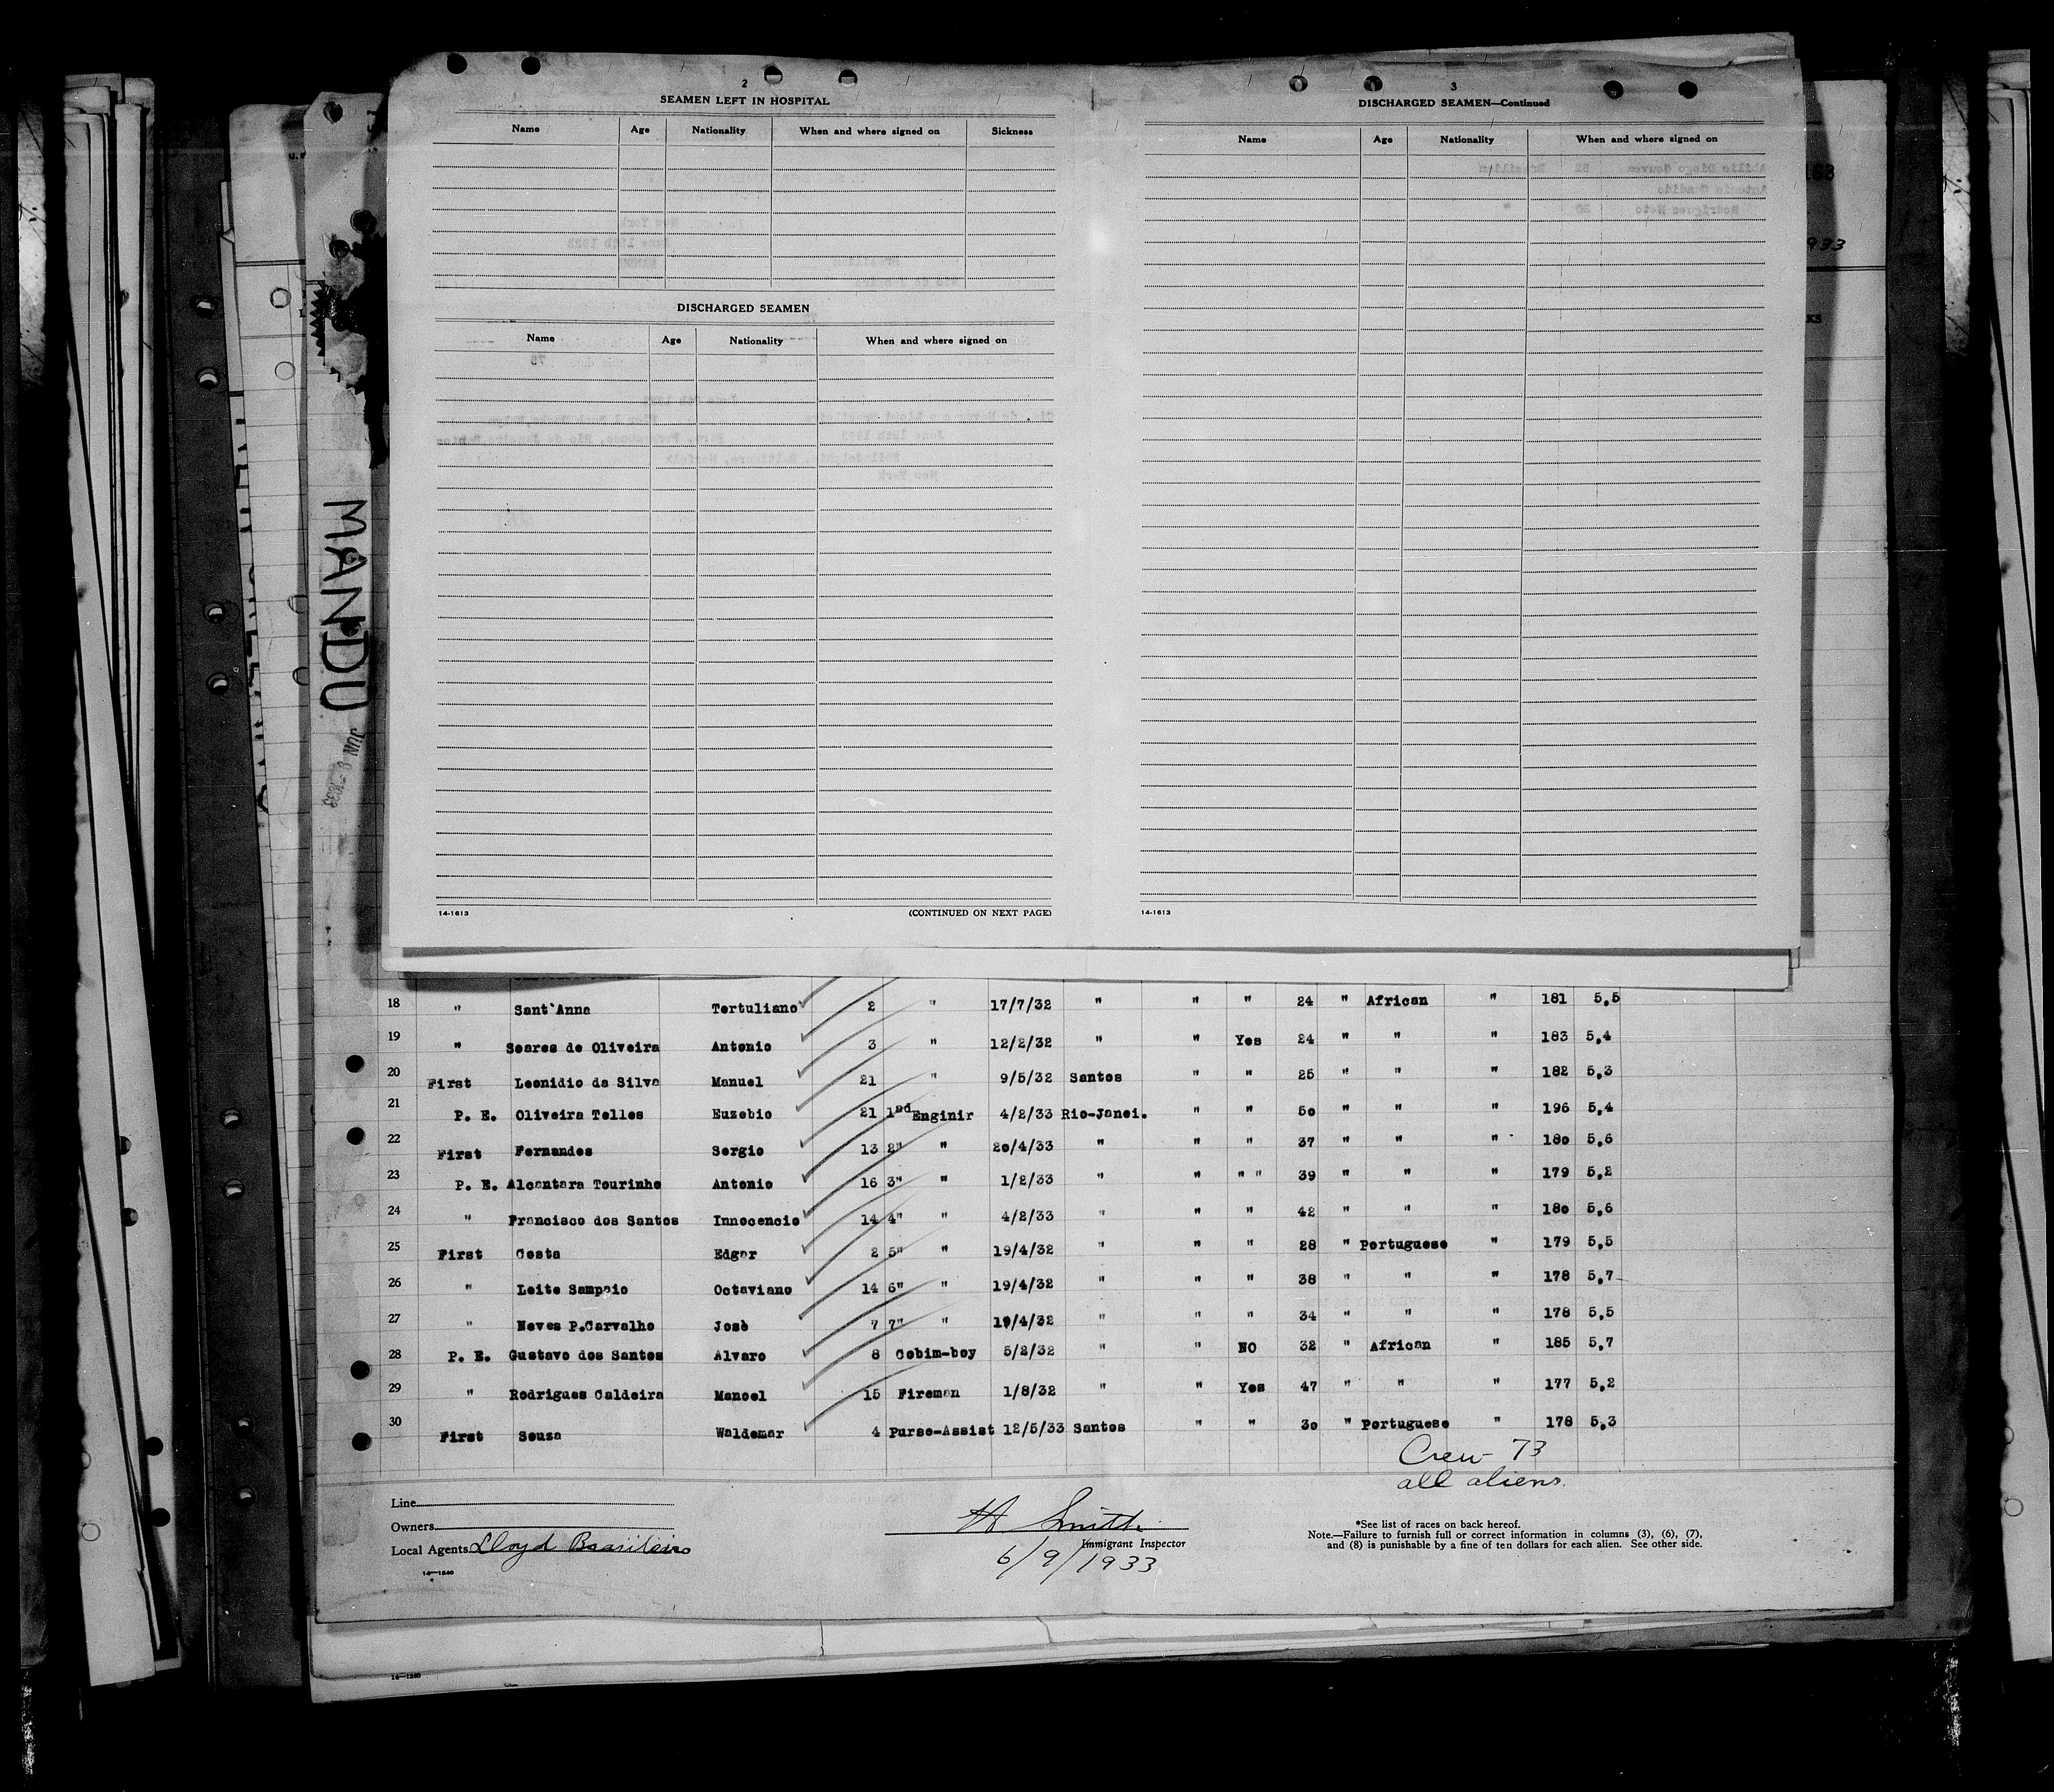 2
SEAMEN LEFT IN HOSPITAL
Name Age Nationality When and where signed on Sickness
DISCHARGED SEAMEN
Name Age Nationality When and where signed on
14-1613 (CONTINUED ON NEXT PAGE)
3
DISCHARGED SEAMEN—Continued
Name Age Nationality When and where signed on
14-1613
MANDU
18 " Sant`Anna Tertuliano 2 " 17/7/32 " " " 24 " African " 181 5,5
19 " Soares de Oliveira Antonio 3 " 12/2/32 " " Yes 24 " " " 183 5,4
20 First Leonidio da Silva Manuel 21 " 9/5/32 Santos " " 25 " " " 182 5,3
21 P. E. Oliveira Telles Euzebio 21 1nd Enginir 4/2/33 Rio-Janei. " " 50 " " " 196 5,4
22 First Fernandes Sergio 13 2" " 20/4/33 " " " 37 " " " 180 5,6
23 P. E. Alcantara Tourinho Antonio 16 3" " 1/2/33 " " " " 39 " " " 179 5,2
24 " Francisco dos Santos Innocencio 14 4" " 4/2/33 " " " 42 " " " 180 5,6
25 First Costa Edgar 2 5" " 19/4/32 " " " 28 " Portuguese " 179 5,5
26 " Leite Sampaio Octaviano 14 6" " 19/4/32 " " " 38 " " " 178 5,7
27 " Neves P.Carvalho Josè 7 7" " 19/4/32 " " " 34 " " " 178 5,5
28 P. E. Gustavo dos Santos Alvaro 8 Cobim-boy 5/2/32 " " NO 32 " African " 185 5,7
29 " Rodrigues Caldeira Manoel 15 Fireman 1/8/32 " " Yes 47 " " " 177 5,2
30 First Souza Waldemar 4 Purse-Assist 12/5/33 Santos " " 30 " Portuguese " 178 5,3
Crew 73
all aliens.
Line
Owners
Local Agents Lloyd Brasileiro
14—1240
H Smith
Immigrant Inspector
6/9/1933
*See list of races on back hereof.
Note.—Failure to furnish full or correct information in columns (3), (6), (7),
and (8) is punishable by a fine of ten dollars for each alien. See other side.
14—1240